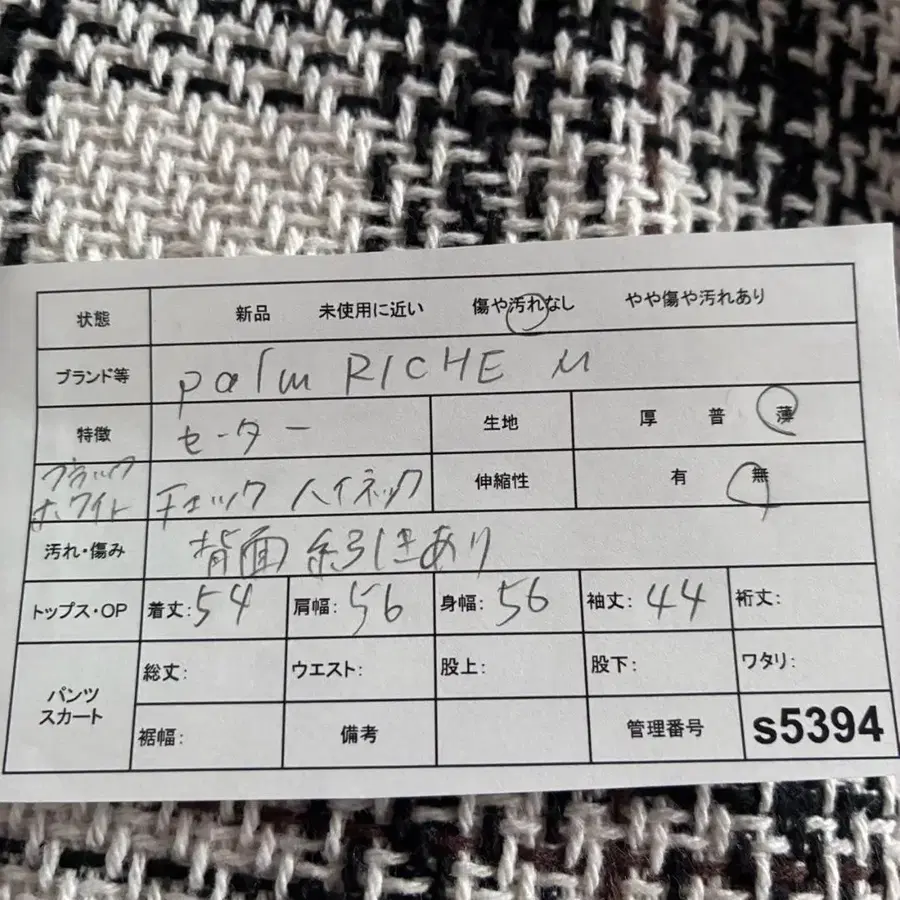 状態 新品 未使用に近い 傷や汚れなし やや傷や汚れあり
ブランド等 palm RICHE M
特徴 セーター 生地 厚 普 薄
ブラック ホワイト チェック ハイネック 伸縮性 有 無
汚れ・傷み 背面 糸引きあり
トップス・OP 着丈:54 肩幅:56 身幅:56 袖丈:44 裄丈:
パンツ スカート 総丈: ウエスト: 股上: 股下: ワタリ:
裾幅: 備考 管理番号 s5394